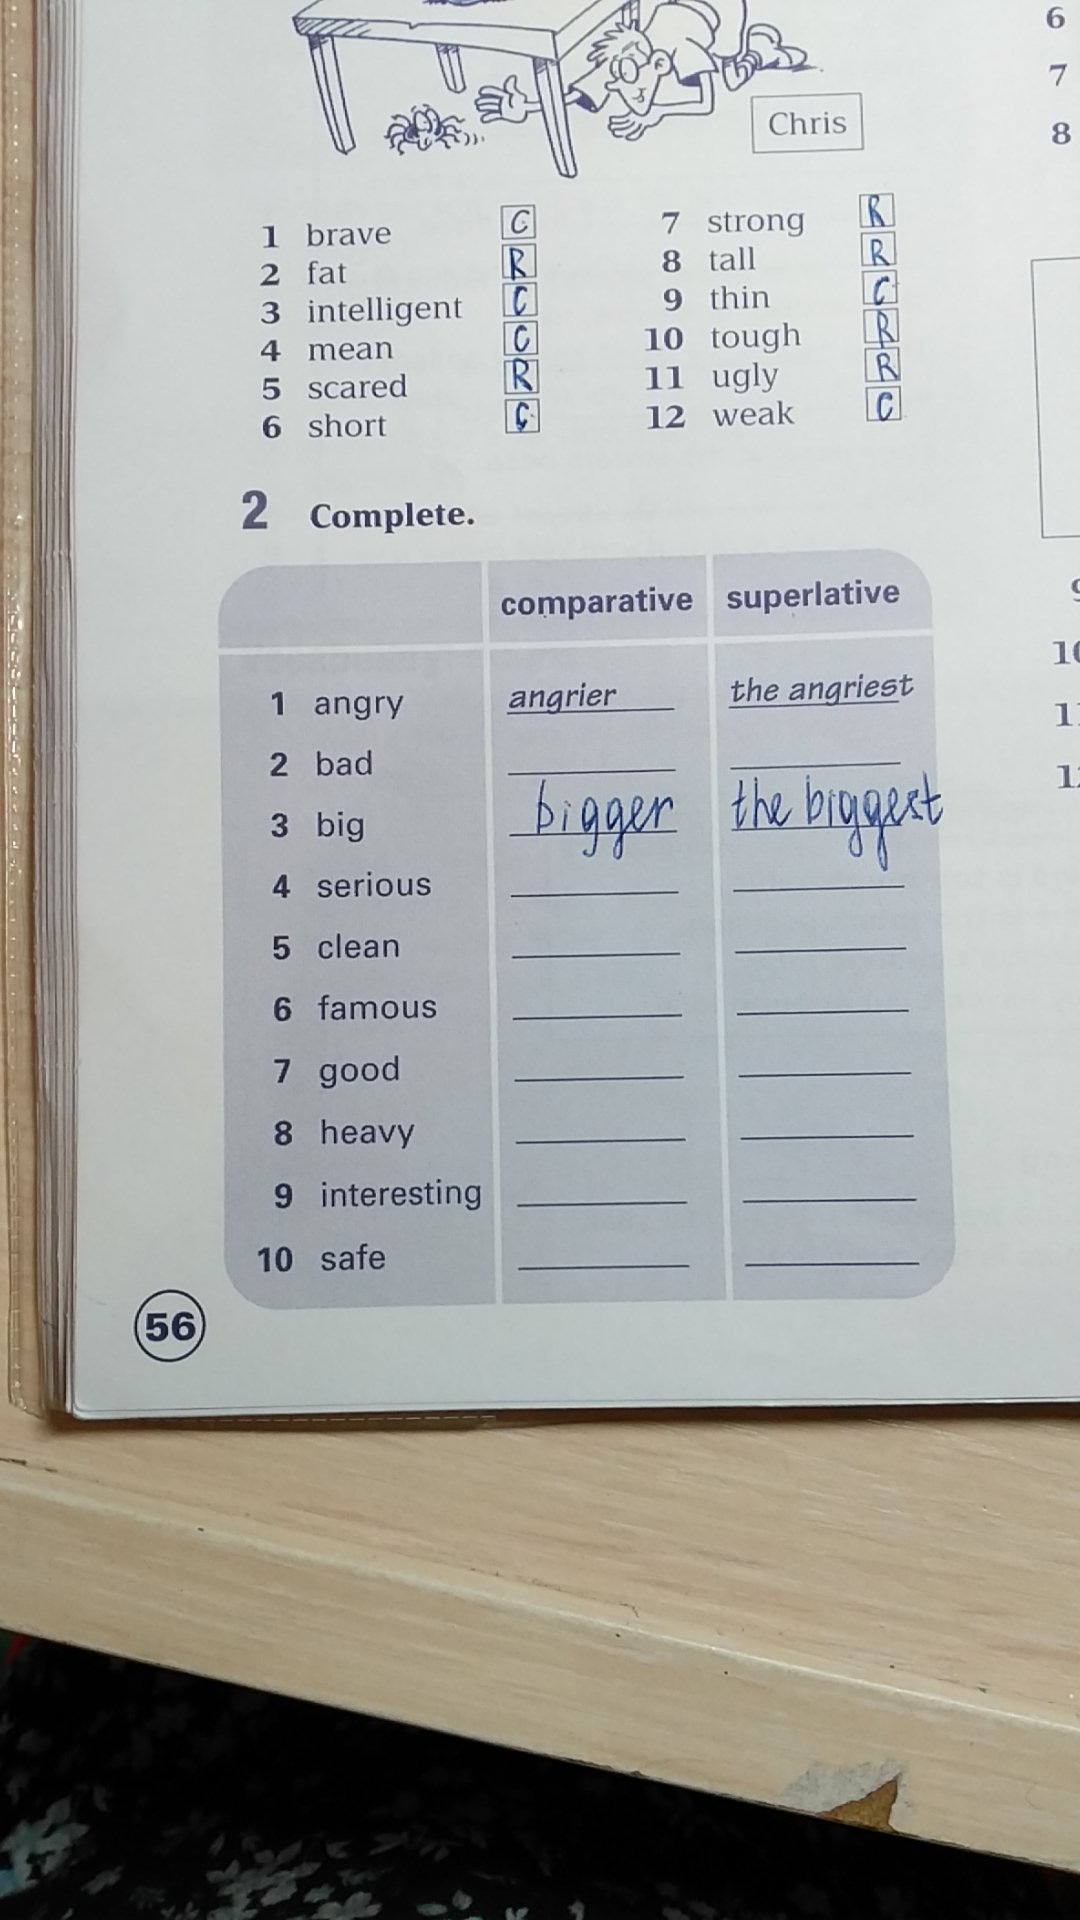 Chris
1 brave C
2 fat R
3 intelligent C
4 mean C
5 scared R
6 short C
7 strong R
8 tall R
9 thin C
10 tough R
11 ugly R
12 weak C
2 Complete.
comparative superlative
1 angry angrier the angriest
2 bad
3 big bigger the biggest
4 serious
5 clean
6 famous
7 good
8 heavy
9 interesting
10 safe
56
6
7
8